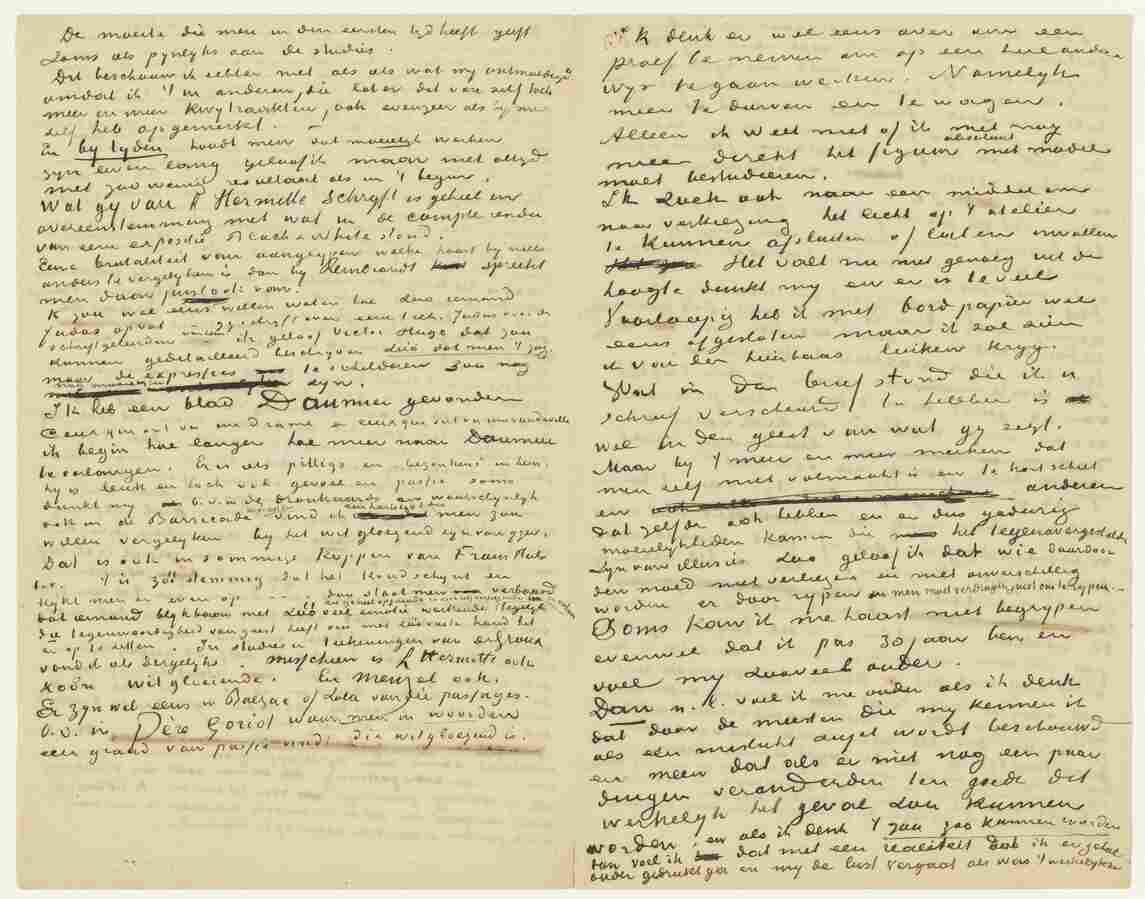 De moeite die men in den eersten tijd heeft geeft
soms als pynlyks aan de studies.
Dit beschouw ik echter niet als als wat my ontmoedigd
omdat ik 't in anderen, die later dat van zelf toch
meer en meer kwytraakten, ook evenzeer als by me
zelf heb opgemerkt. —
En by tyden houdt men dat moeielyk werken
zyn leven lang geloof ik maar niet altyd
met zoo weinig resultaat als in 't begin.
Wat gy van L'Hermitte schryft is geheel in
overeenstemming met wat in de compte rendu
van eene expositie Black & White stond.
Eene brutaliteit van aangrypen welke haast by niets
anders te vergelyken is dan by Rembrandt spreekt
men daar juist ook van.
Ik zou wel eens willen weten hoe zoo iemand
Judas opvat gy schryft over een teek. Judas voor de
schriftgeleerden. ik geloof Victor Hugo dat zou
kunnen gedetailleerd beschryven zóó dat men 't zag.
maar de expressies te schilderen zou nog
nog moeielyker zyn.
Ik heb een blad Daumier gevonden
Ceux qui ont vu un drame & ceux qui ont vu un vaudeville
ik begin hoe langer hoe meer naar Daumier
te verlangen. Er is iets pittigs en bezonkens in hem,
hy is leuk en toch vol gevoel en passie soms
dunkt my b.v. in de dronkaards en waarschynlyk
ook in de Barricade vind ik men zou
willen vergelyken by het witgloeiend zyn van yzer.
Dat is ook in sommige koppen van Frans Hals
b.v. 't is zoo stemmig dat het koud schynt en
kykt men er even op dan staat men verbaasd
dat iemand blykbaar met zoo veel emotie werkende tegelyk
die tegenwoordigheid van geest heeft van met zoo vaste hand het
er op te zetten. In studies en teekeningen van de Groux
vond ik iets dergelyks. misschien is L'Hermitte ook
zoo'n witgloeiende. En Menzel ook.
Er zyn wel eens in Balzac of Zola van die passages.
b.v. in Père Goriot waar men in woorden
een graad van passie vindt die witgloeiend is.
Ik denk er wel eens over om een
proef te nemen om op een heel andere
wys te gaan werken. Namelyk
meer te durven en te wagen.
Alleen ik weet niet of ik niet nog
absoluut
meer direkt het figuur met model
moet bestudeeren.
Ik zoek ook naar een middel om
naar verkiezing het licht op 't atelier
te kunnen afsluiten of laten invallen
Het valt nu niet genoeg uit de
hoogte dunkt my en er is te veel
Voorloopig heb ik met bordpapier wel
eens afgesloten maar ik zal zien
ik van den huisbaas luiken kryg.
Wat in den brief stond die ik u
schreef verscheurd te hebben is
wel in den geest van wat gy zegt.
Maar by 't meer en meer merken dat
men zelf niet volmaakt is en te kort schiet
en anderen
dat zelfde ook hebben en er dus gedurig
moeielykheden komen die het tegenovergestelde
zyn van illusies zoo geloof ik dat wie daardoor
den moed niet verliezen en niet onverschillig
worden er door rypen en men moet verdragen juist om te rypen.
Soms kan ik me haast niet begrypen
evenwel dat ik pas 30 jaar ben en
voel my zooveel ouder.
Dan n.l. voel ik me ouder als ik denk
dat door de meesten die my kennen ik
als een mislukt sujet wordt beschouwd
en meer dat als er niet nog een paar
dingen veranderden ten goede dit
werkelyk het geval zou kunnen
worden. en als ik denk 't zou zoo kunnen worden
dan voel ik dat met een realiteit dat ik er geheel
onder gedrukt ga en my de lust vergaat als was 't werkelyk zoo.